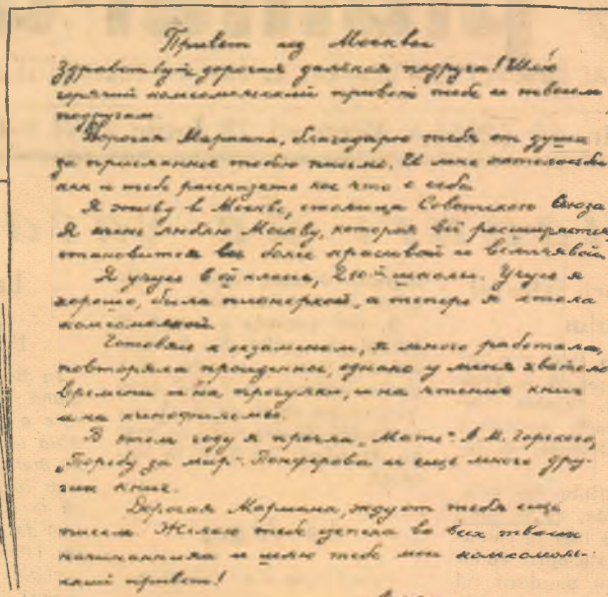 Привет из Москвы
Здравствуй дорогая далёкая подруга! Шлю
горячий комсомольский привет тебе и твоим
подругам
Дорогая Мариана, благодарю тебя от души
за присланное тобою письмо. И мне хотелось бы
как и тебе рассказать кое что о себе
Я живу в Москве, столице Советского Союза
Я очень люблю Москву, которая всё расширяется
становится всё более красивой и величавой
Я учусь в классе, 210й школы. Учусь я
хорошо, была пионеркой, а теперь я стала
комсомолкой
Готовясь к экзаменам, я много работала,
повторяла пройденное, однако у меня хватало
времени и на прогулки, и на чтение книг
и на кинофильмы.
В этом году я прочла "Мать" А. М. Горького,
"Борьбу за мир" Панферова и еще много дру-
гих книг.
Дорогая Мариана, жду от тебя еще
писем. Желаю тебе успеха во всех твоих
начинаниях и шлю тебе мой комсомоль-
ский привет!